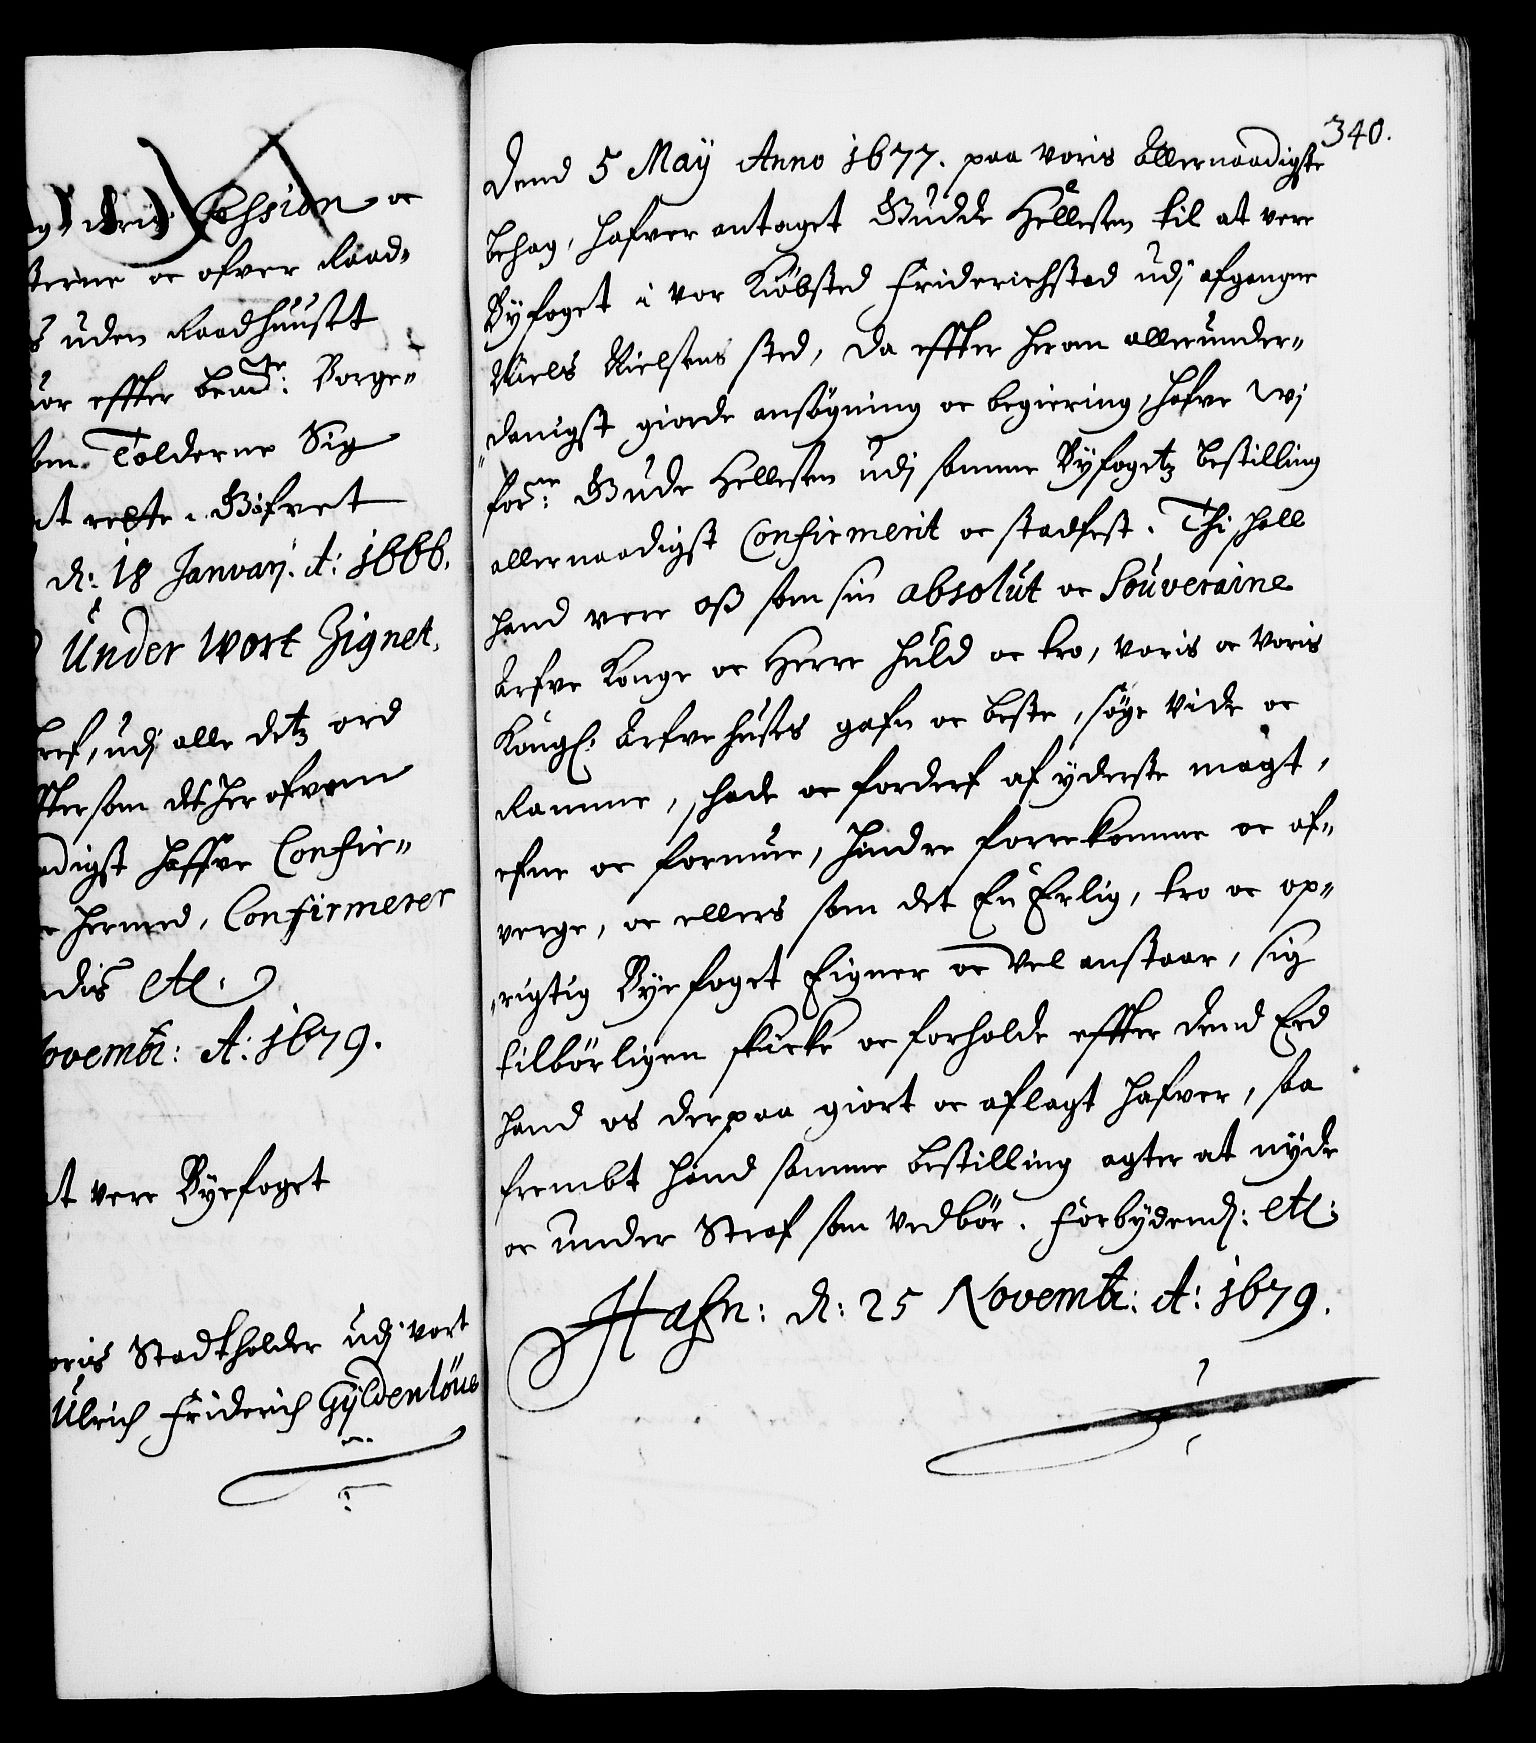 Session oc
terne oc ofver Raad-
uden Raadhuuset
effter bemte: Borge-
som Tolderne Sig
at rette. Gifvet
d: 18 Januarj. A: 1666.
Under wort Zignet.
bref, udj alle detz ord
som det her ofven
digst haffve Confir-
hermed, Confirmerer
dis etc.
ovembr: A: 1679.
at vere Byefoget
oris Stadtholder udj vort
Ulrich Friderich Gÿldenlöue
340.
Dend 5 Maÿ Anno 1677. paa voris Allernaadigste
behag, hafver antaget Gudde Hellesen til at vere
Byfoget i vor Kiöbsted Friderichstad udj afgangne
Niels Nielsens sted, da effter heram allerunder-
danigst giorde ansögning oc begiering, hafve Wj
forne: Gude Hellesen udj samme Byfogetz bestilling
allernaadigst Confirmerit oc stadfest. Thi skall
hand vere oß som sin absolut oc Souveraine
Arfve Konge oc Herre huld oc tro, voris oc voris
Kongl: Arfvehuses gafn oc beste, söge vide oc
Ramme, skade oc forderf af ÿderste magt,
efne oc formue, hindre forrekomme oc af-
verge, oc ellers som det En Erlig, tro oc op-
rigtig Byefoget Eigner oc vel anstaar, sig
tilbörligen skicke oc forholde effter dend Eed
hand os derpaa giort oc aflagt hafver, saa
frembt hand samme bestilling agter at nÿde
oc under Straf som vedbör. Forbÿdend: etc:
Hafn: d: 25 Novembr: A: 1679.